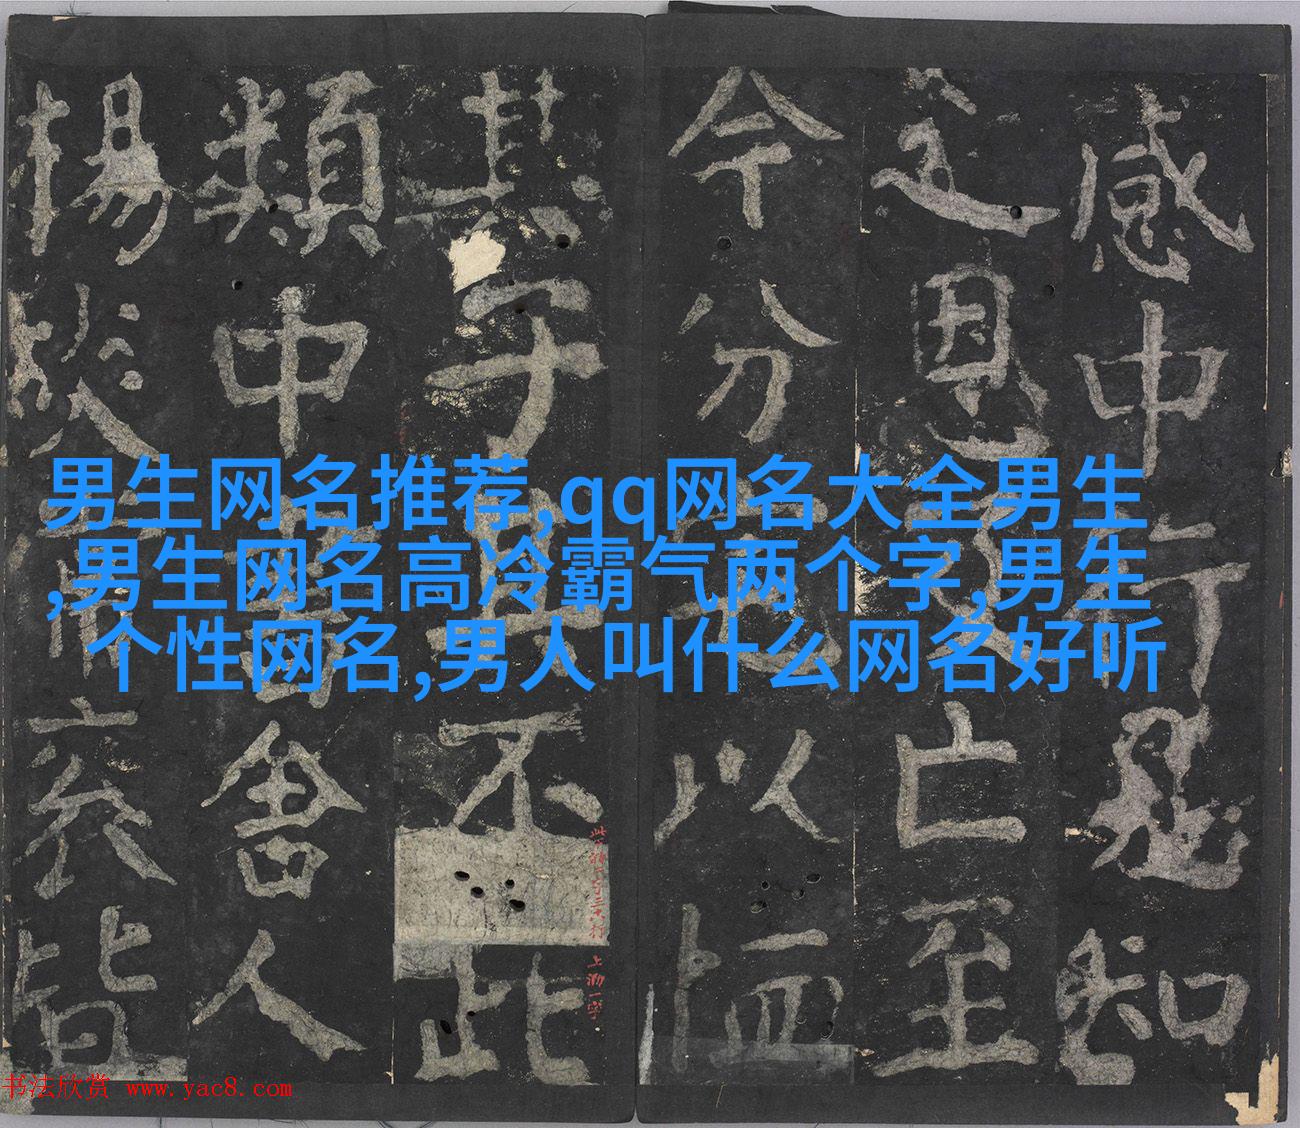 男生网名推荐,qq网名大全男生
,男生网名高冷霸气两个字,男生
个性网名,男人叫什么网名好听
感中行愚知
恩
亡至
今分
以恤
其子
不此
類中
舍人
揚
衮皆
书法欣赏 www.yac8.com